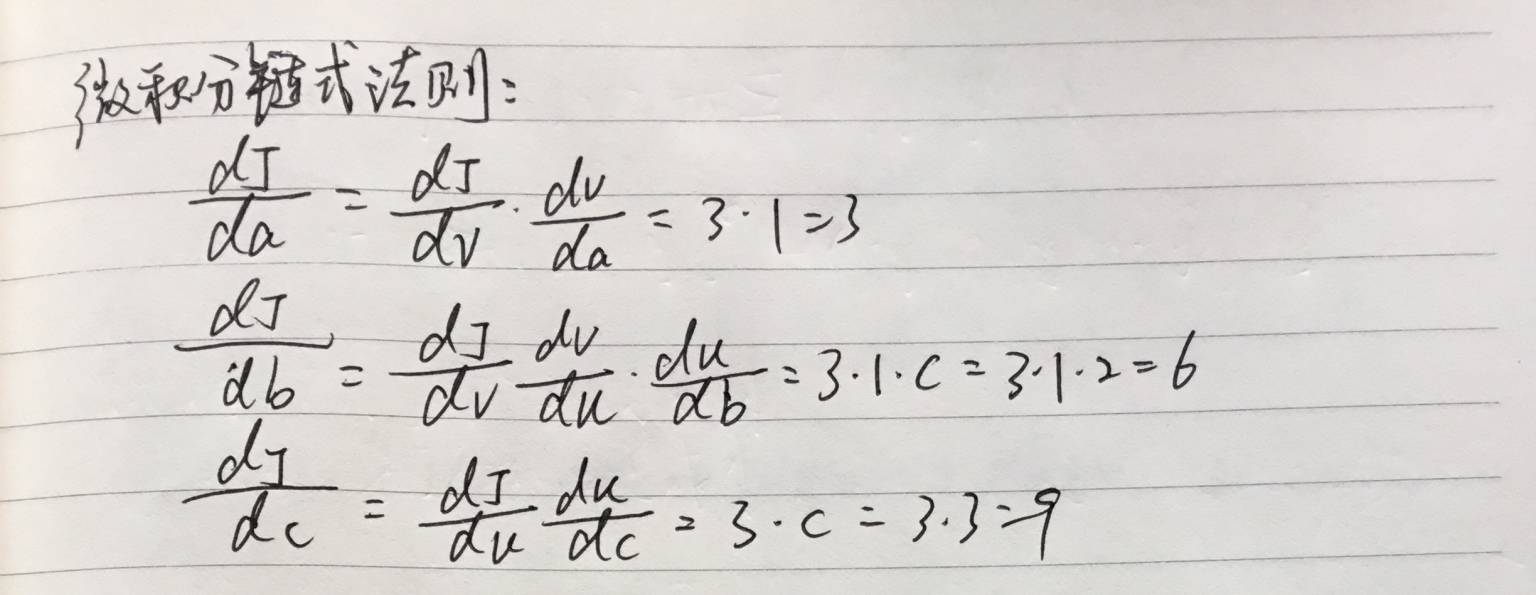 微积分链式法则:
dJ/da = dJ/dv · dv/da = 3 · 1 = 3
dJ/db = dJ/dv dv/du · du/db = 3 · 1 · c = 3 · 1 · 2 = 6
dJ/dc = dJ/du du/dc = 3 · c = 3 · 3 = 9